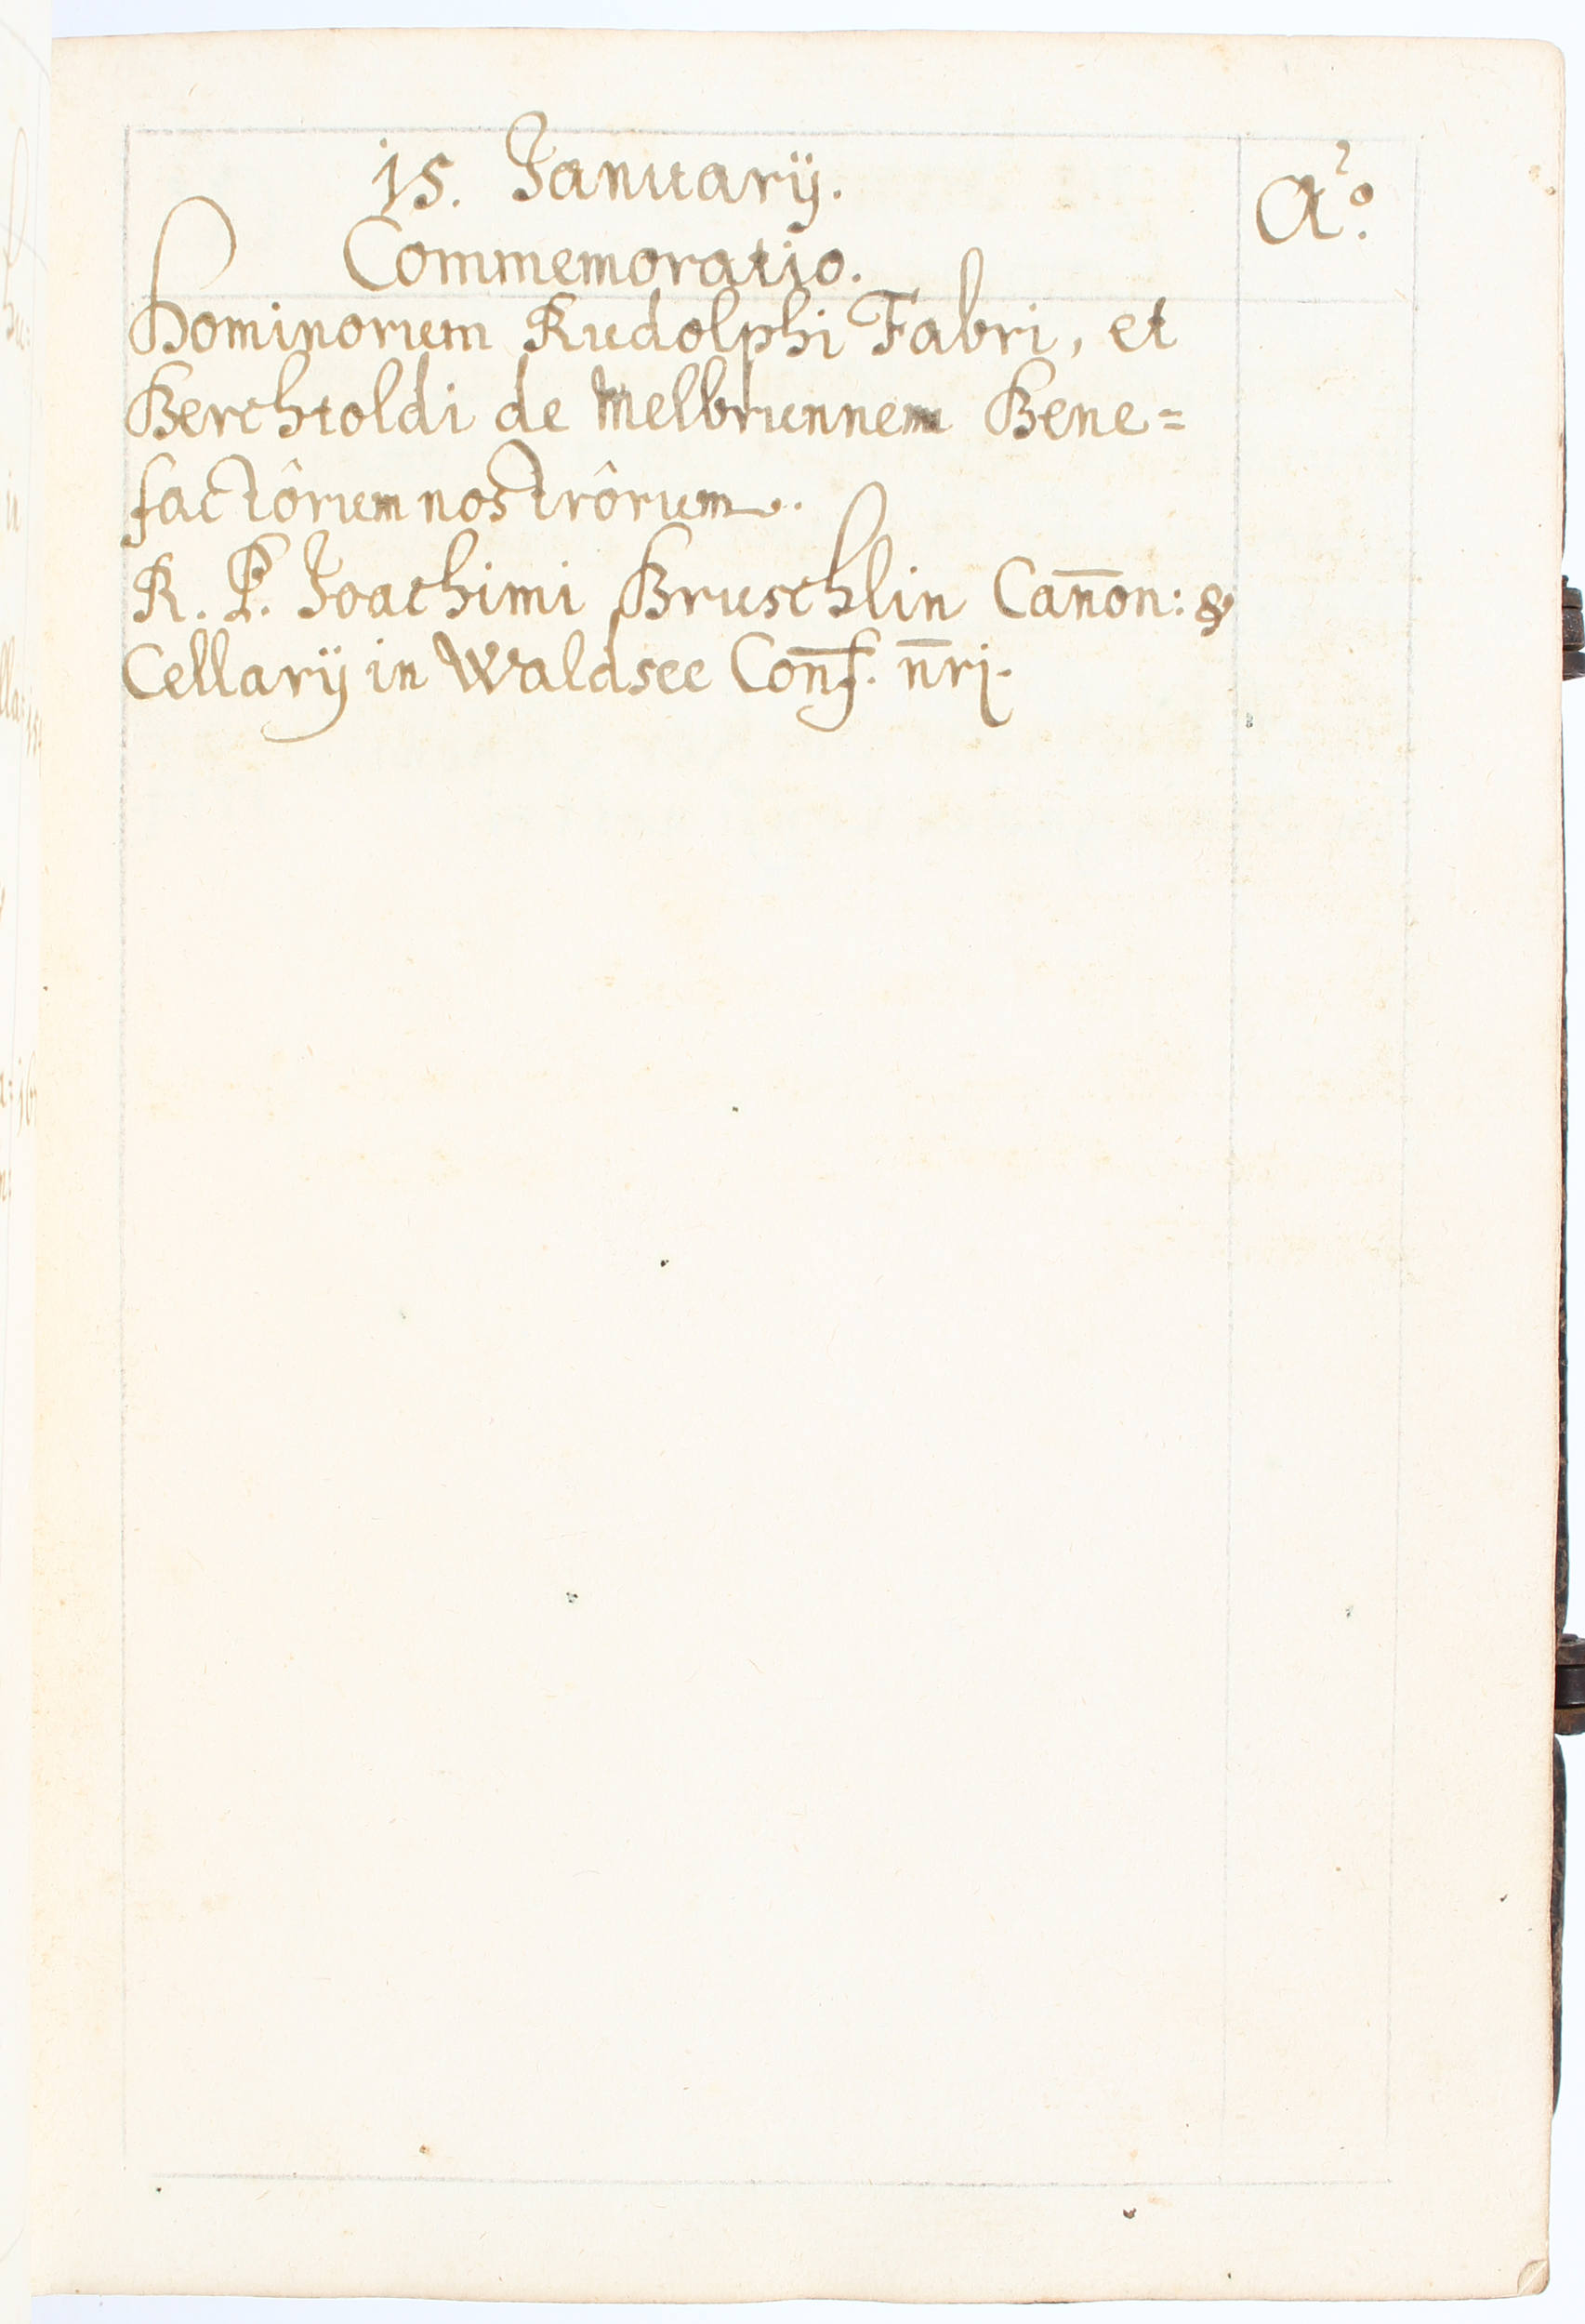 15. Januarij.
A.º
Commemoratio.
Dominorum Rudolphi Fabri, et
Berchtoldi de Melbrunnem Bene=
factôrum nostrôrum.
R. P. Joachimi Bruschlin Can̄on: &
Cellarij in Waldsee Conf̄. n̄ri.